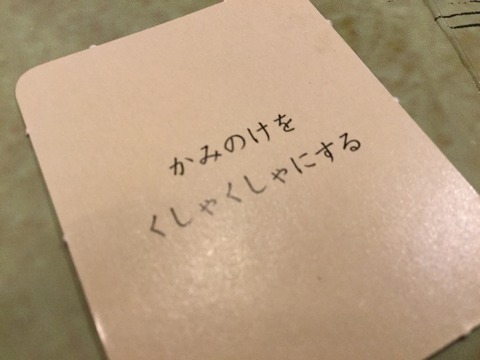 かみのけを
くしゃくしゃにする